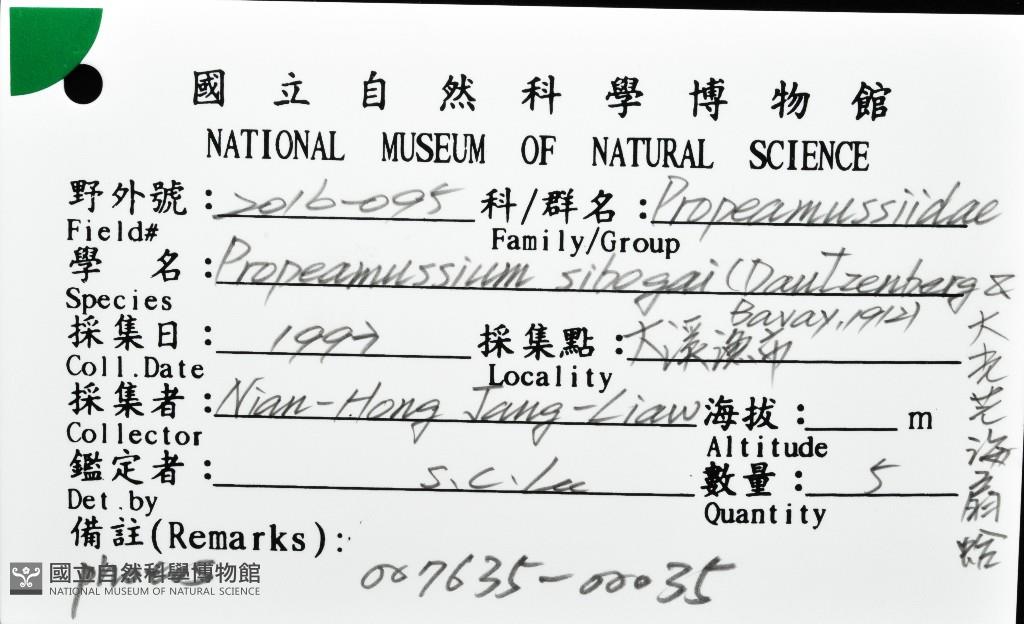 國立自然科學博物館
NATIONAL MUSEUM OF NATURAL SCIENCE
野外號：2016-095 科/群名：Propeamussiidae
Field# Family/Group
學 名：Propeamussium sibogai (Dautzenberg &
Species Bavay, 1912)
採集日：1997 採集點：大溪漁港
Coll.Date Locality
採集者：Nian-Hong Jang-Liaw 海拔： m
Collector Altitude
鑑定者：S.C.Lee 數量：5
Det.by Quantity
備註(Remarks)：
photos 007635-00035
大光芒海扇蛤
國立自然科學博物館
NATIONAL MUSEUM OF NATURAL SCIENCE